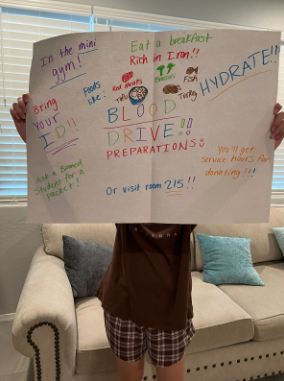 In the mini
gym!
Eat a breakfast
Rich in Iron!!
HYDRATE!!
Foods
like..
Red meats
Broccoli
Fish
Tofu
Turkey
Bring
YOUR
ID!!
BLOOD
DRIVE!!
PREPARATIONS:
Ask a
Student for a
packet!
Or visit room 215!!
You'll get
service hours for
donating!!!